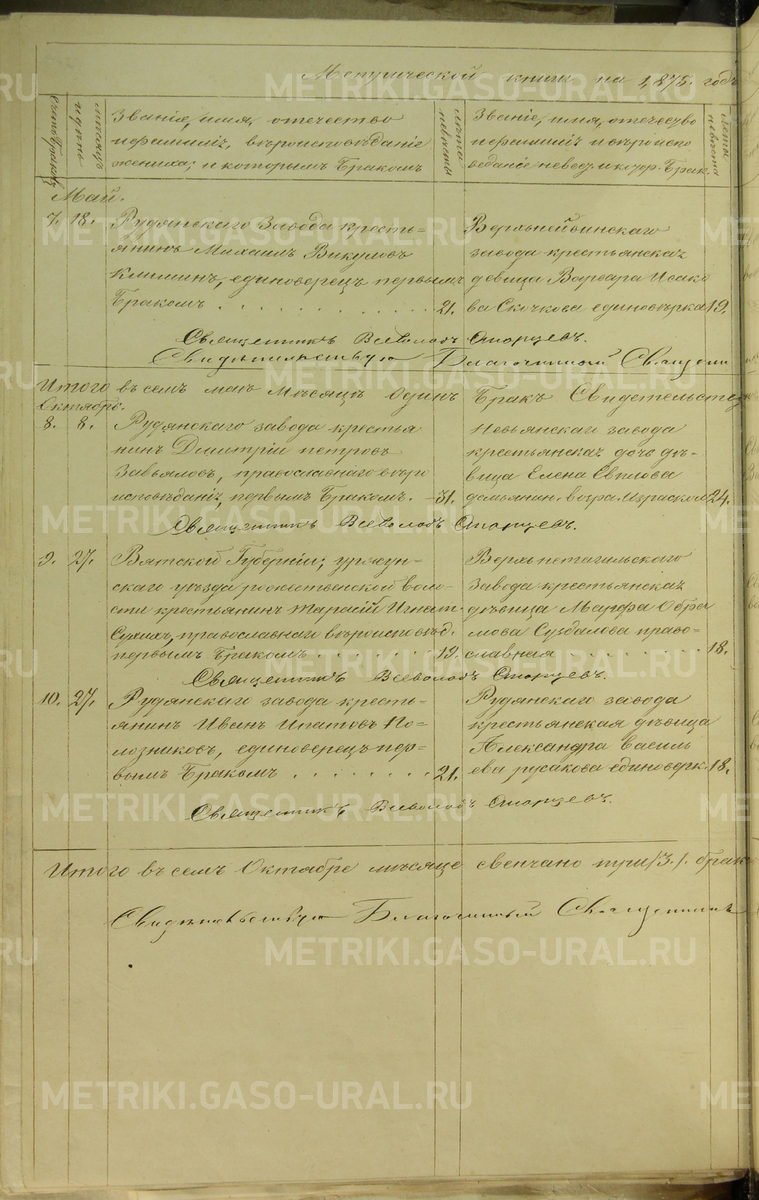 Метрической книги на 1875. годъ
счетъ браковъ
мѣсяцъ и день
Званіе, имя, отечество
и фамилія, вѣроисповѣданіе
жениха; и которымъ бракомъ
лѣта
Званіе, имя, отечество
и фамилія и вѣроиспо
веданіе невес. и котор. брак.
лѣты невѣсты
Май.
7. 18. Рудянскаго завода кресть-
янинъ Михаилъ Викуловъ
Климинъ, единоверецъ первымъ
бракомъ 21.
Верхънейвинскаго
завода крестьянская
девица Варвара Исако
ва Скочкова единовѣрка 19.
Священникъ Всеволодъ
Свидѣтельствую Благочинный Священни
Итого въ семъ маѣ мѣсяцѣ одинъ бракъ Свидетельству
Октябрь.
8. 8. Рудянскаго завода крестья
нинъ Димитрій Петровъ
Завьяловъ, православнаго вѣро
исповѣданія, первымъ бракомъ. 31.
Невьянскаго завода
крестьянская дочь дѣ-
вица Елена
24.
Священникъ Всеволодъ
9. 27. Вятской Губерніи; уржун-
скаго уѣзда рожественской воло-
сти крестьянинъ Тарасій Игнат.
Сухихъ, православнаго вѣроисповѣд.
первымъ бракомъ 19.
Верхънетагильскаго
завода крестьянская
дѣвица Марфа Абра
мова Суздалова право-
славная 18.
Священникъ Всеволодъ
10. 27. Рудянскаго завода кресть-
янинъ Иванъ Ипатовъ По-
лозниковъ, единоверецъ пер-
вымъ бракомъ 21.
Рудянскаго завода
крестьянская дѣвица
Александра Василь
ева русакова единоверк. 18.
Священникъ Всеволодъ
Итого въ семъ Октябре мѣсяце свенчано три /3./ брак
Свидѣтельствую Благочинный Священникъ
METRIKI.GASO-URAL.RU